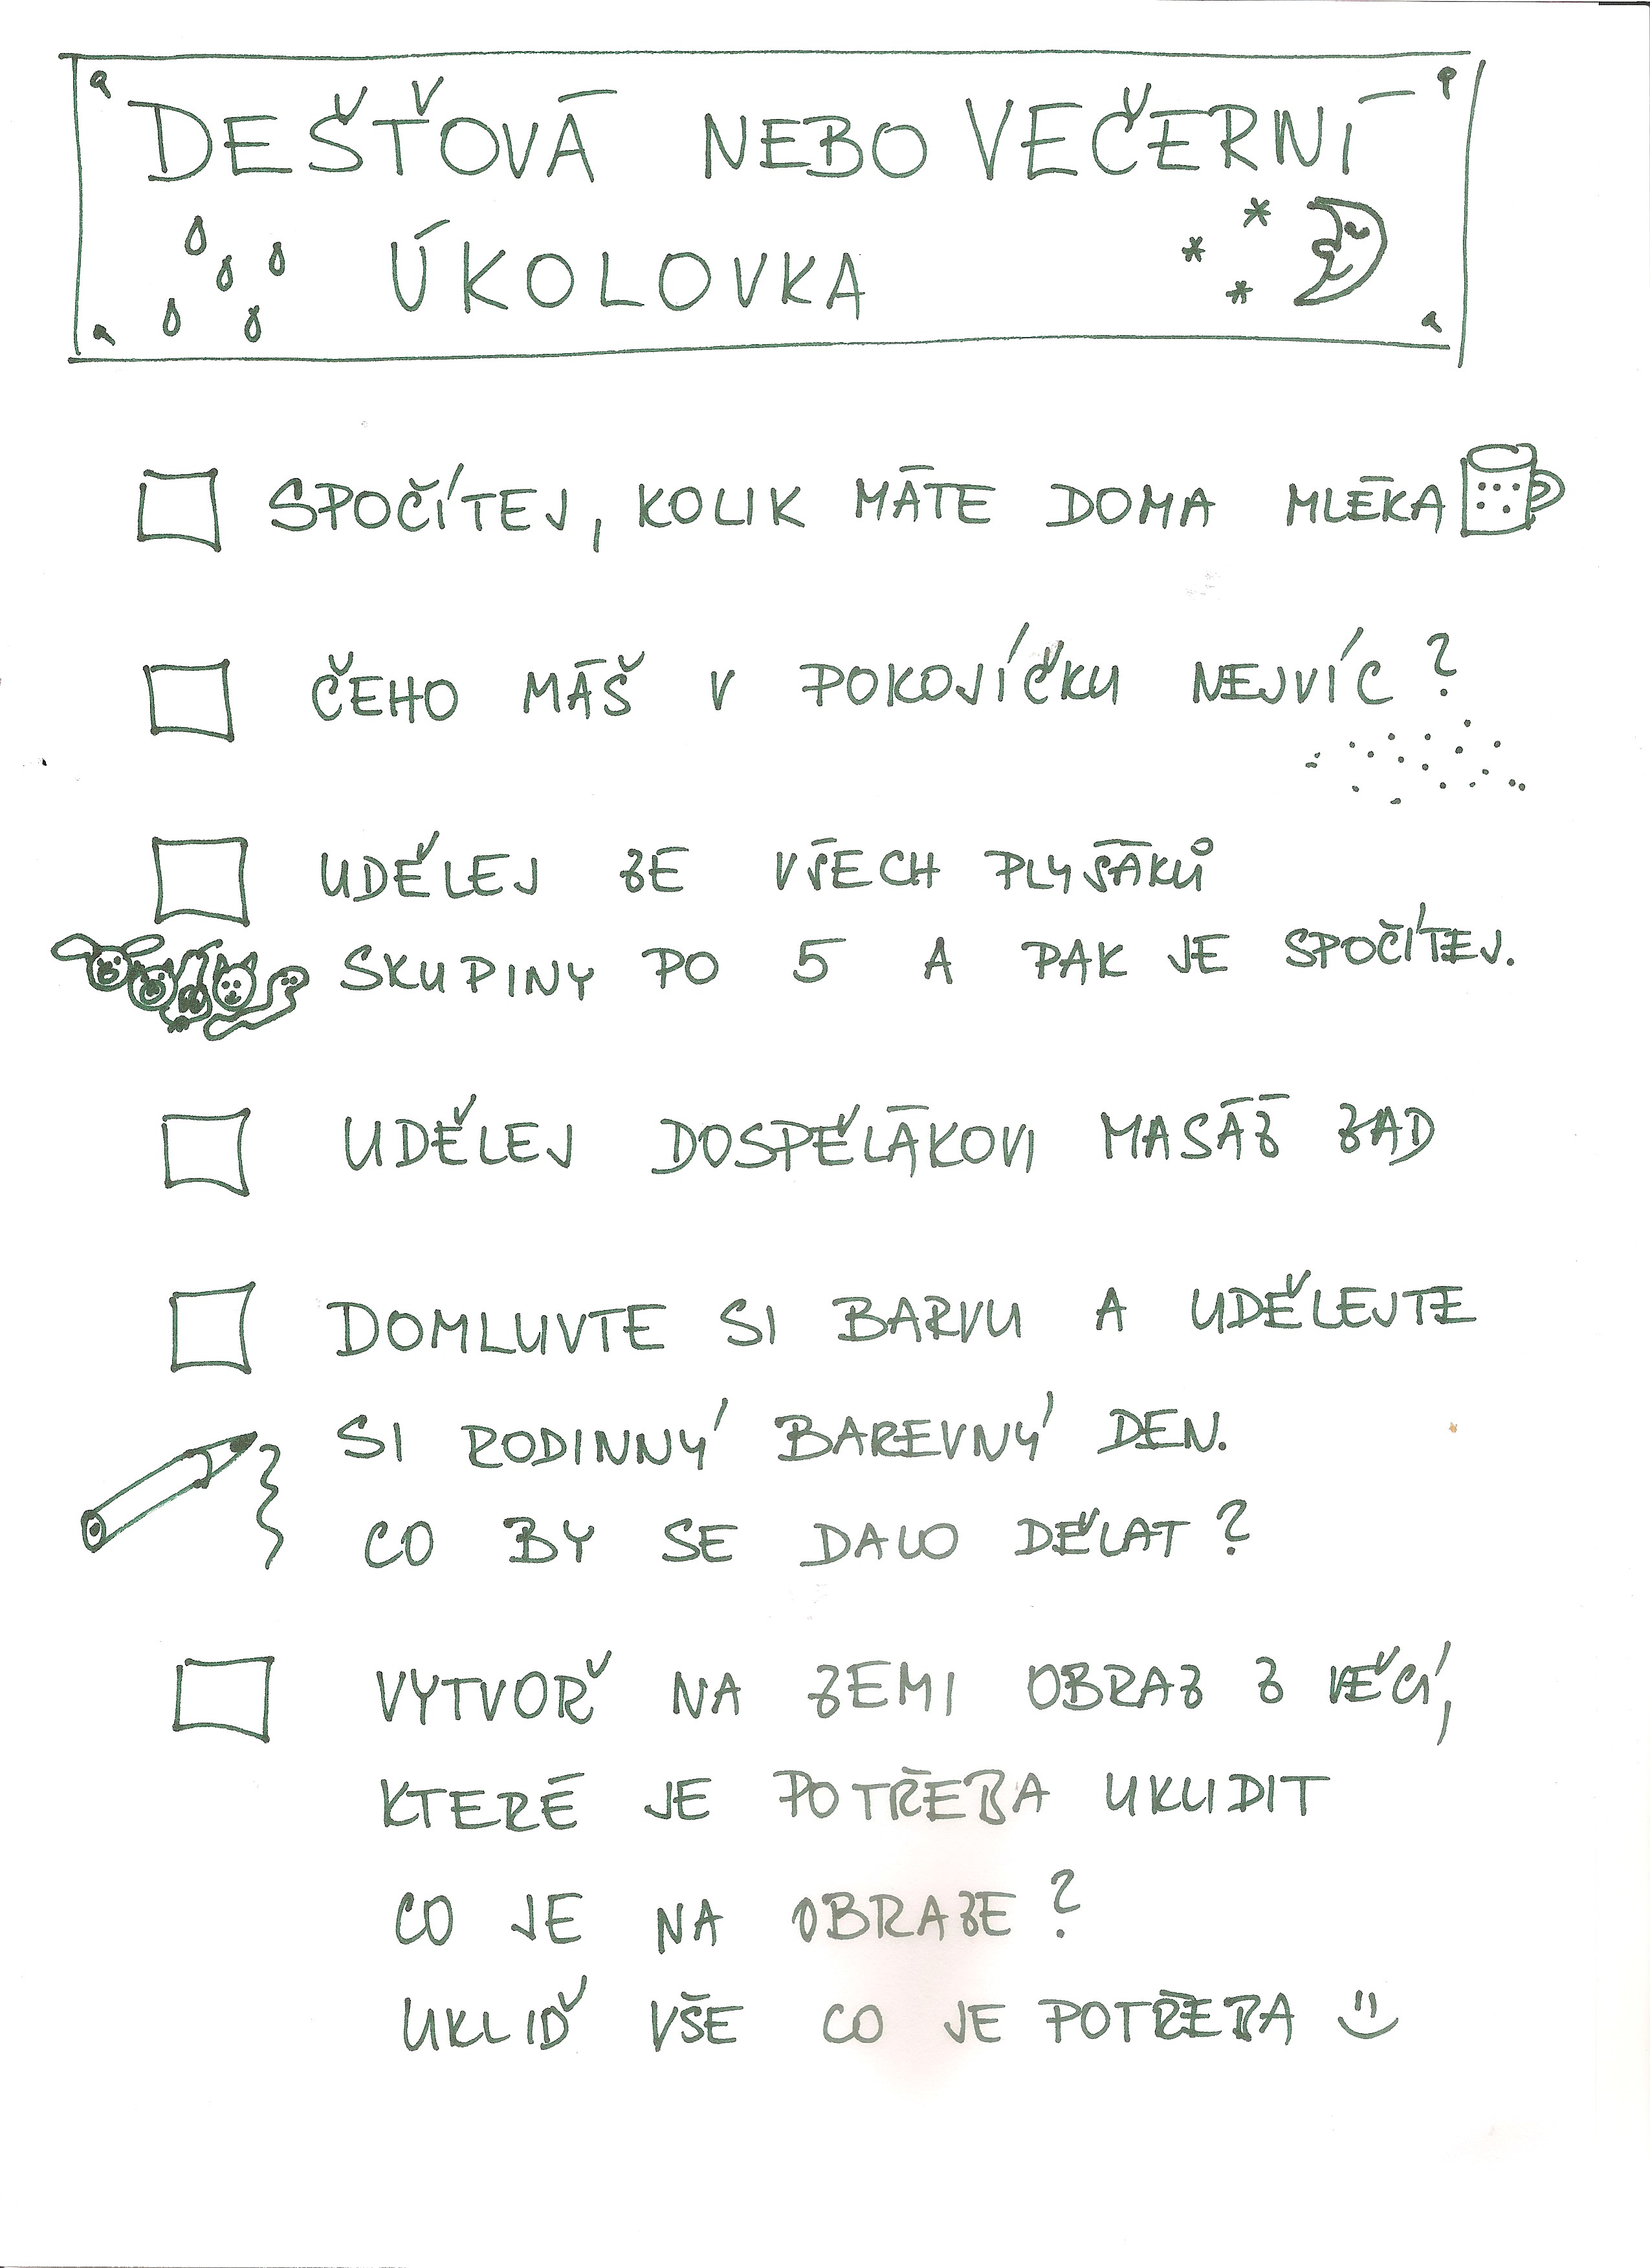 DEŠŤOVÁ NEBO VEČERNÍ
ÚKOLOVKA
SPOČÍTEJ, KOLIK MÁTE DOMA MLÉKA
ČEHO MÁŠ V POKOJÍČKU NEJVÍC?
UDĚLEJ ZE VŠECH PLYŠÁKŮ
SKUPINY PO 5 A PAK JE SPOČÍTEJ.
UDĚLEJ DOSPĚLÁKOVI MASÁŽ ZAD
DOMLUVTE SI BARVU A UDĚLEJTE
SI RODINNÝ BAREVNÝ DEN.
CO BY SE DALO DĚLAT?
VYTVOŘ NA ZEMI OBRAZ Z VĚCÍ,
KTERÉ JE POTŘEBA UKLIDIT
CO JE NA OBRAZE?
UKLIĎ VŠE CO JE POTŘEBA